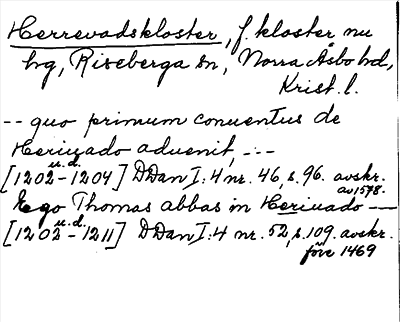 Herrevadskloster, f. kloster nu
hg, Riseberga sn, Norra Åsbo hd,
Krist. l.
-- quo primum conuentus de
Heriuado aduenit, ---
[1202 u.d. - 1204] DDan I:4 nr. 46, s. 96. avskr.
av 1578.
Ego Thomas abbas in Heriuado --
[1202 u.d. - 1211] DDan I:4 nr. 52, s. 109. avskr.
före 1469